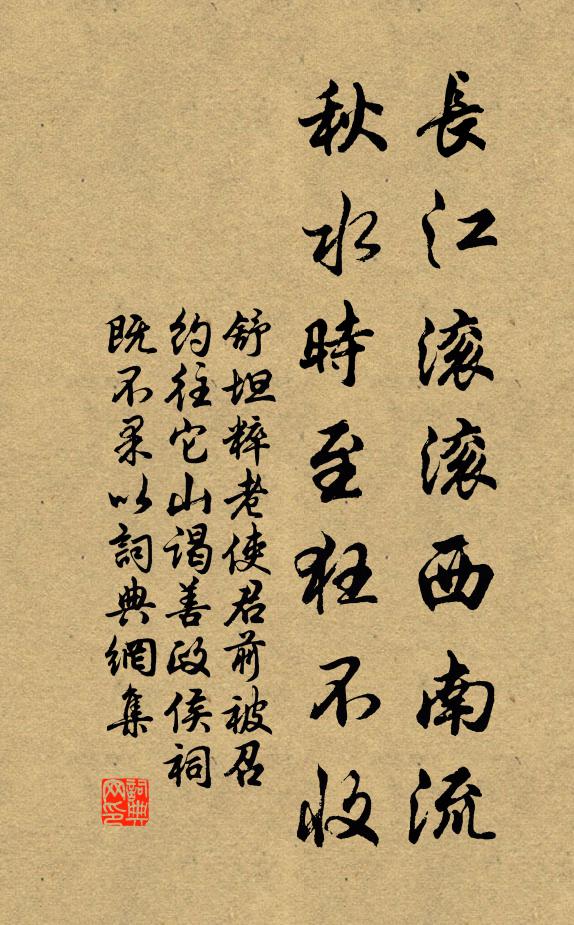 長江滾滾西南流
秋水時至狂不收
舒坦粹老使君前被召
約往它山謁善政侯祠
既不果以詞典網集
詞典网印